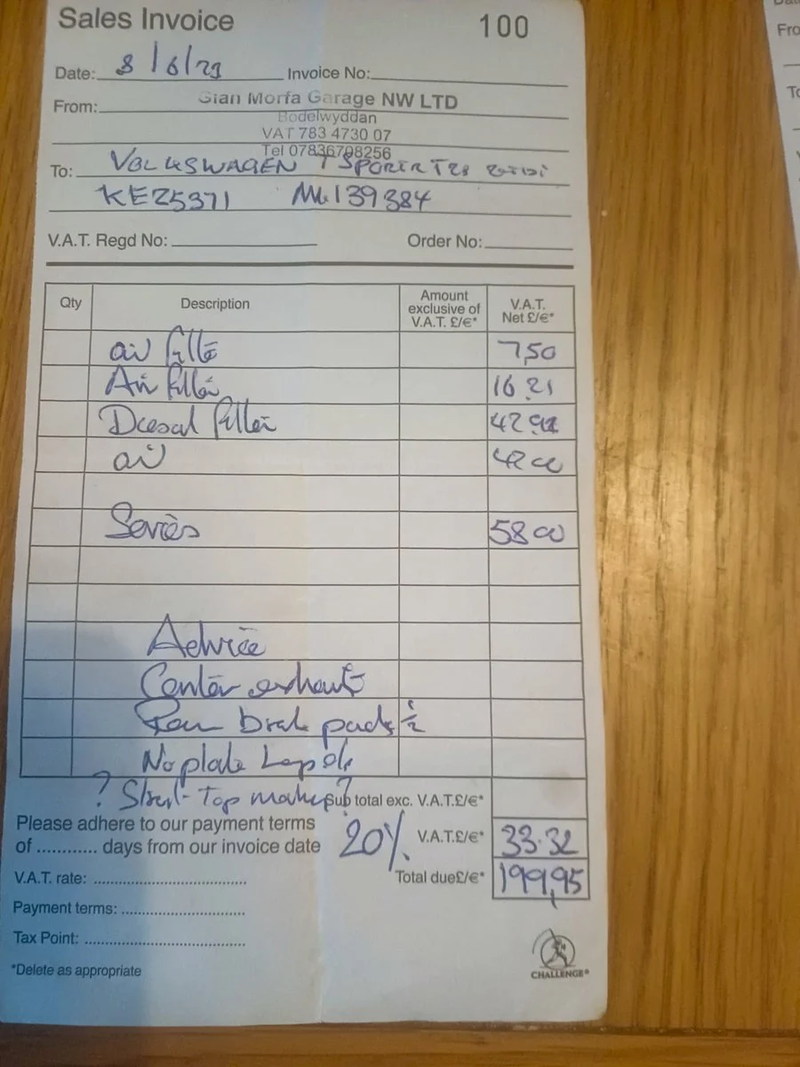 Sales Invoice 100
Date: 8/6/23 Invoice No:
From: Glan Morfa Garage NW LTD
Bodelwyddan
VAT 783 4730 07
Tel 07836798256
To: VOLKSWAGEN
KE25371 139384
V.A.T. Regd No: Order No:
Qty Description Amount exclusive of V.A.T. £/€* V.A.T. Net £/€*
7,50
Air filter 16.21
Diesal filter
42 00
58 00
Advice
Center exhaust
Rear brak pads ½
No plate
? Top
Sub total exc. V.A.T.£/€*
Please adhere to our payment terms
of ............ days from our invoice date 20% V.A.T.£/€* 33.32
V.A.T. rate: Total due£/€* 199,95
Payment terms:
Tax Point:
*Delete as appropriate
CHALLENGE®